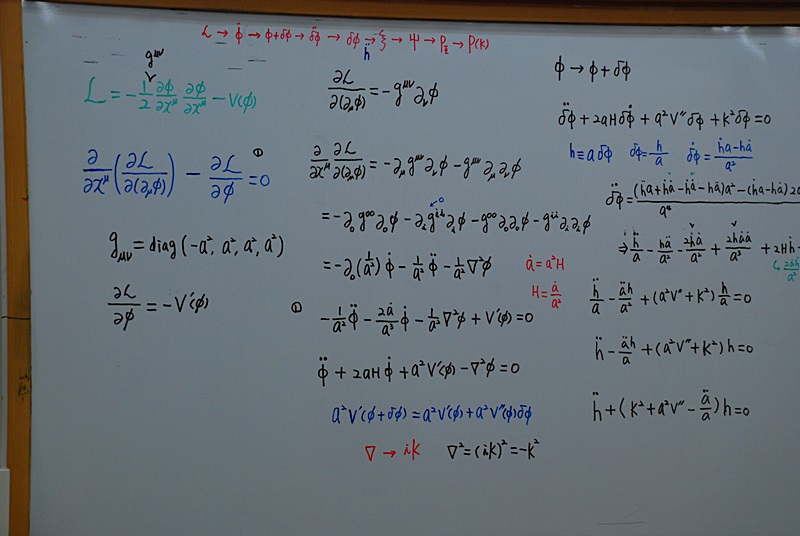 L → φ̈ → φ+δφ → δ̈φ → δφ → ξ → ψ → P_ξ → P(K)
ḧ
g^{μν}
L = -1/2 ∂φ/∂x^μ ∂φ/∂x^μ - V(φ)
∂/∂x^μ (∂L/∂(∂_μφ)) - ∂L/∂φ = 0 ①
g_{μν} = diag(-a², a², a², a²)
∂L/∂φ = -V'(φ)
∂L/∂(∂_μφ) = -g^{μν}∂_νφ
∂/∂x^μ ∂L/∂(∂_μφ) = -∂_μ g^{μν} ∂_νφ - g^{μν} ∂_μ ∂_νφ
= -∂₀g^{00}∂₀φ - ∂_i g^{ii} ∂_iφ - g^{00}∂₀∂₀φ - g^{ii}∂_i∂_iφ
→0
= -∂₀(1/a²)φ̇ - 1/a² φ̈ - 1/a² ∇²φ
ȧ = a²H
H = ȧ/a²
① -1/a² φ̈ - 2ȧ/a³ φ̇ - 1/a² ∇²φ + V'(φ) = 0
φ̈ + 2aHφ̇ + a²V'(φ) - ∇²φ = 0
a²V'(φ+δφ) = a²V'(φ) + a²V''(φ)δφ
∇ → iK ∇² = (iK)² = -K²
φ → φ + δφ
δ̈φ + 2aHδ̇φ + a²V''δφ + K²δφ = 0
h ≡ aδφ δφ = h/a δ̇φ = (ḣa - hȧ)/a²
δ̈φ = ((ḧa + ḣȧ - ḣȧ - hä)a² - (ḣa - hȧ)2a
a⁴
⇒ ḧ/a - hä/a² - 2ḣȧ/a² + 2hȧȧ/a³ + 2Hḣ -
ḧ/a - äh/a² + (a²V'' + K²) h/a = 0
ḧ - äh/a + (a²V'' + K²) h = 0
ḧ + (K² + a²V'' - ä/a) h = 0